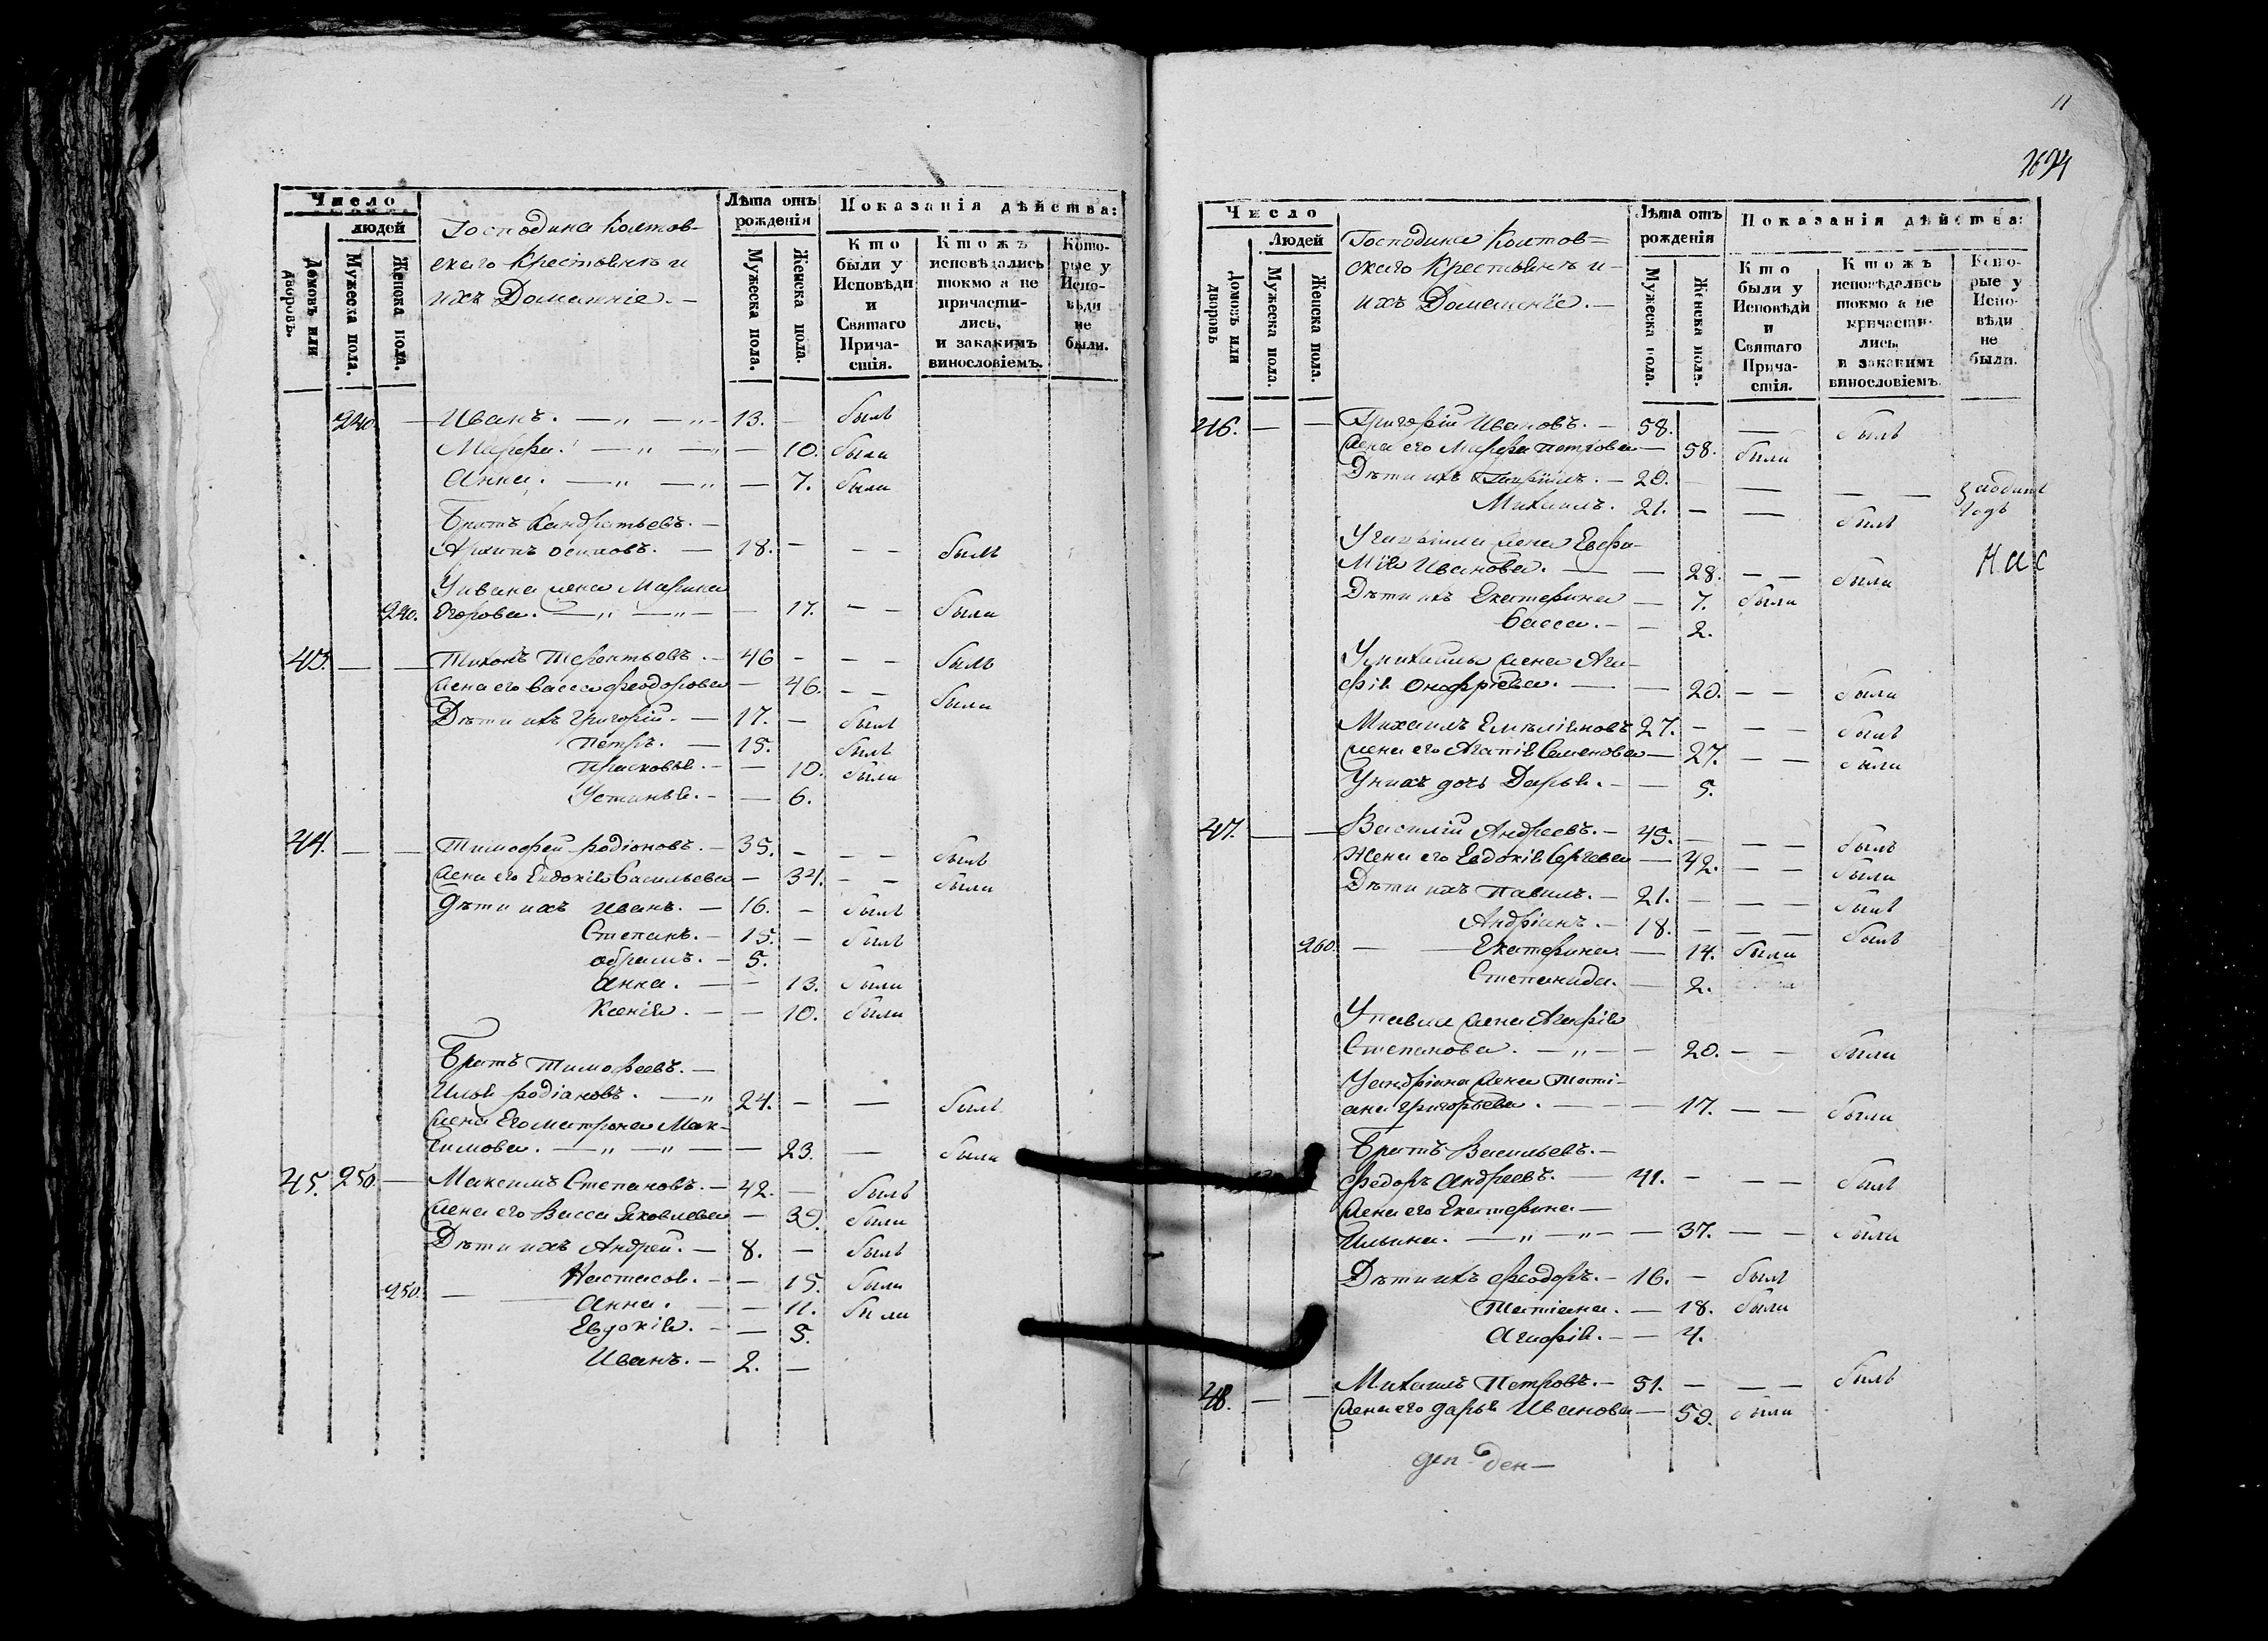 Число
людей
Домовъ или дворовъ.
Мужеска пола.
Женска пола.
Господина Колтов-
скаго Крестьянъ и
ихъ Домашніе. —
Лѣта отъ рожденія
Мужеска пола.
Женска пола.
Показанія дѣйства:
Кто были у Исповѣди и Святаго Причастія.
Ктожъ исповѣдались токмо а не причасти-лись, и закакимъ винословіемъ.
Кото-рые у Испо-вѣди не были.
240. — Иванъ. — „ — „ 13. — былъ
Марфа. — „ — „ — 10. была
Анна. — „ — „ — 7. была
Братъ Кандратьевъ. —
Архипъ Осиповъ. — 18. — — — былъ
У Ивана жена Марина
240. Егорова. — „ — „ — 17. — — была
43. — — Тихонъ Терентьевъ. — 46 — — — былъ
Жена его Васса Феодорова — 46. — — была
Дѣти ихъ Григорій. — 17. — былъ
Петръ. — 15. былъ
Прасковья. — — 10. была
Устинья. — — 6.
44. — — Тимофей Родіоновъ. — 35. — — — былъ
Жена его Евдокія Васильева — 34. — — была
Дѣти ихъ Иванъ. — 16. — былъ
Степанъ. — 15. — былъ
Абрамъ. — 5.
Анна. — — 13. была
Ксенія. — — 10. была
Братъ Тимофеевъ. —
Илья Родіановъ. — „ 24. — — былъ
Жена Его Матрона Мак-
симова. — „ — „ — — 23. — была
45. 250. — Максимъ Степановъ. — 42. — былъ
Жена его Васса Яковлева — 39. была
Дѣти ихъ Андрей. — 8. — былъ
Настасья. — — 15. была
250. — Анна. — — 11. была
Евдокія. — — 5.
Иванъ. — 2. —
11
1694
Число
Людей
Домовъ или дворовъ
Мужеска пола.
Женска пола.
Господина Колтов=
скаго Крестьянъ и-
ихъ Домашніе. —
Лѣта отъ рожденія
Мужеска пола.
Женска пола.
Показанія дѣйства:
Кто были у Исповѣди и Святаго Прича-стія.
Ктожъ исповѣдались токмо а не причасти-лись, и закакимъ винословіемъ.
Кото-рые у Испо-вѣди не были.
46. — — Григорій Ивановъ. — 58. — былъ
Жена его Марфа Петрова — 58. была
Дѣти ихъ Гаврилъ. — 29. — — — —
Михаилъ. 21. — — былъ
Годъ
У Гаврилы жена Евфи-
мія Иванова. — — 28. — — была
Дѣти ихъ Екатерина — 7. была
Васса. — — 2.
У Михаилы жена Ага-
фія Онофріева. — — 20. — — была
Михаилъ Емеліяновъ 27. — — — былъ
Жена его Агапія Семенова — 27. — — была
У нихъ дочь Дарья. — — 5.
47. — — Василій Андреевъ. — 45. — — — былъ
Жена его Евдокія Сергеева — 42. — — была
Дѣти ихъ Павилъ. — 21. — — — былъ
Андріанъ. — 18. — — — былъ
260. — Екатерина — 14. была
Степанида. — 2.
У Павла жена Агафія
Степанова. — „ — — 20. — — была
У Андріана жена Тати-
ана Григорьева. — — — 17. — — была
Братъ Васильевъ. —
Федоръ Андреевъ. — 41. — — — былъ
Жена его Екатерина —
Ильина. — „ — „ — — 37. — — была
Дѣти ихъ Феодоръ. — 16. — былъ
Татіана. — 18. была
Агафія. — — 4.
48. — — Михаилъ Петровъ. — 51. — — — былъ
Жена его Дарья Иванова — 59. была